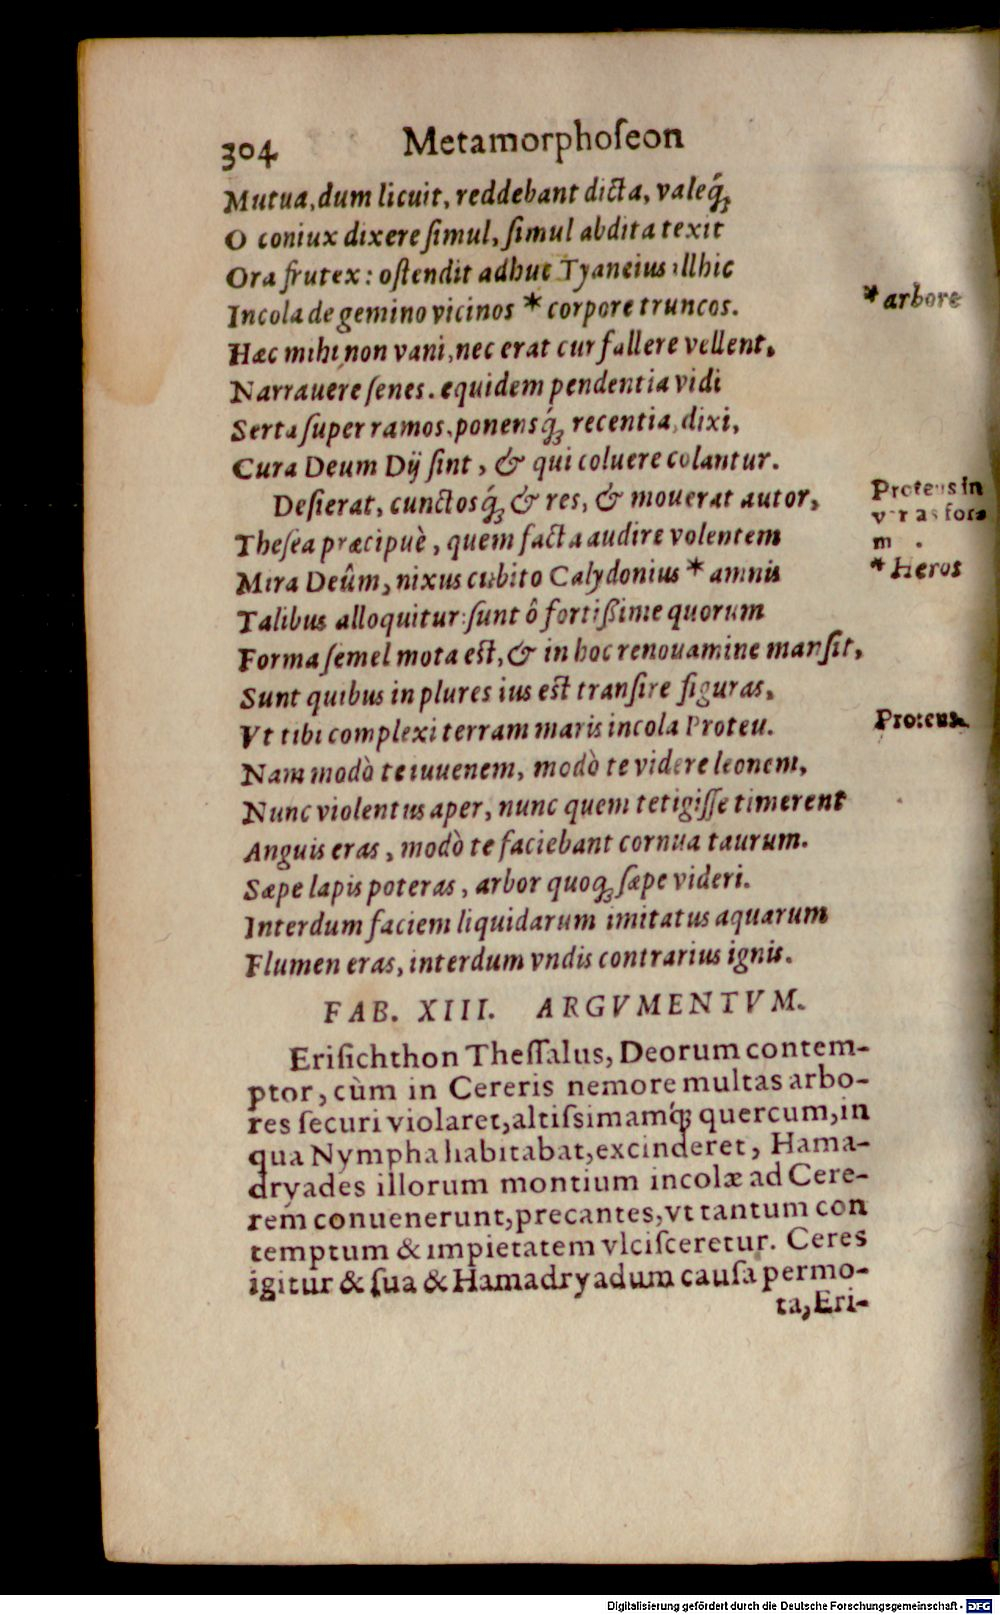 304 Metamorphoſeon
Mutua, dum licuit, reddebant dicta, valeq́ꝫ
O coniux dixere ſimul, ſimul abdita texit
Ora frutex: oſtendit adhuc Tyaneius illhic
Incola de gemino vicinos * corpore truncos.
* arbore
Hæc mihi non vani, nec erat cur fallere vellent,
Narrauere ſenes. equidem pendentia vidi
Serta ſuper ramos, ponensq́ꝫ recentia, dixi,
Cura Deum Dij ſint, & qui coluere colantur.
Deſierat, cunctosq́ꝫ & res, & mouerat autor,
Proteus in
Theſea præcipuè, quem facta audire volentem
Mira Deûm, nixus cubito Calydonius * amnis
* Heros
Talibus alloquitur: ſunt ô fortißime quorum
Forma ſemel mota eſt, & in hoc renouamine manſit,
Sunt quibus in plures ius eſt tranſire figuras,
Vt tibi complexi terram maris incola Proteu.
Proteus.
Nam modò te iuuenem, modò te videre leonem,
Nunc violentus aper, nunc quem tetigiſſe timerent
Anguis eras, modò te faciebant cornua taurum.
Sæpe lapis poteras, arbor quoqꝫ ſæpe videri.
Interdum faciem liquidarum imitatus aquarum
Flumen eras, interdum vndis contrarius ignis.
FAB. XIII. ARGVMENTVM.
Eriſichthon Theſſalus, Deorum contem-
ptor, cùm in Cereris nemore multas arbo-
res ſecuri violaret, altiſsimamq́ꝫ quercum, in
qua Nympha habitabat, excinderet, Hama-
dryades illorum montium incolæ ad Cere-
rem conuenerunt, precantes, vt tantum con
temptum & impietatem vlciſceretur. Ceres
igitur & ſua & Hamadryadum cauſa permo-
ta, Eri-
Digitalisierung gefördert durch die Deutsche Forschungsgemeinschaft - DFG